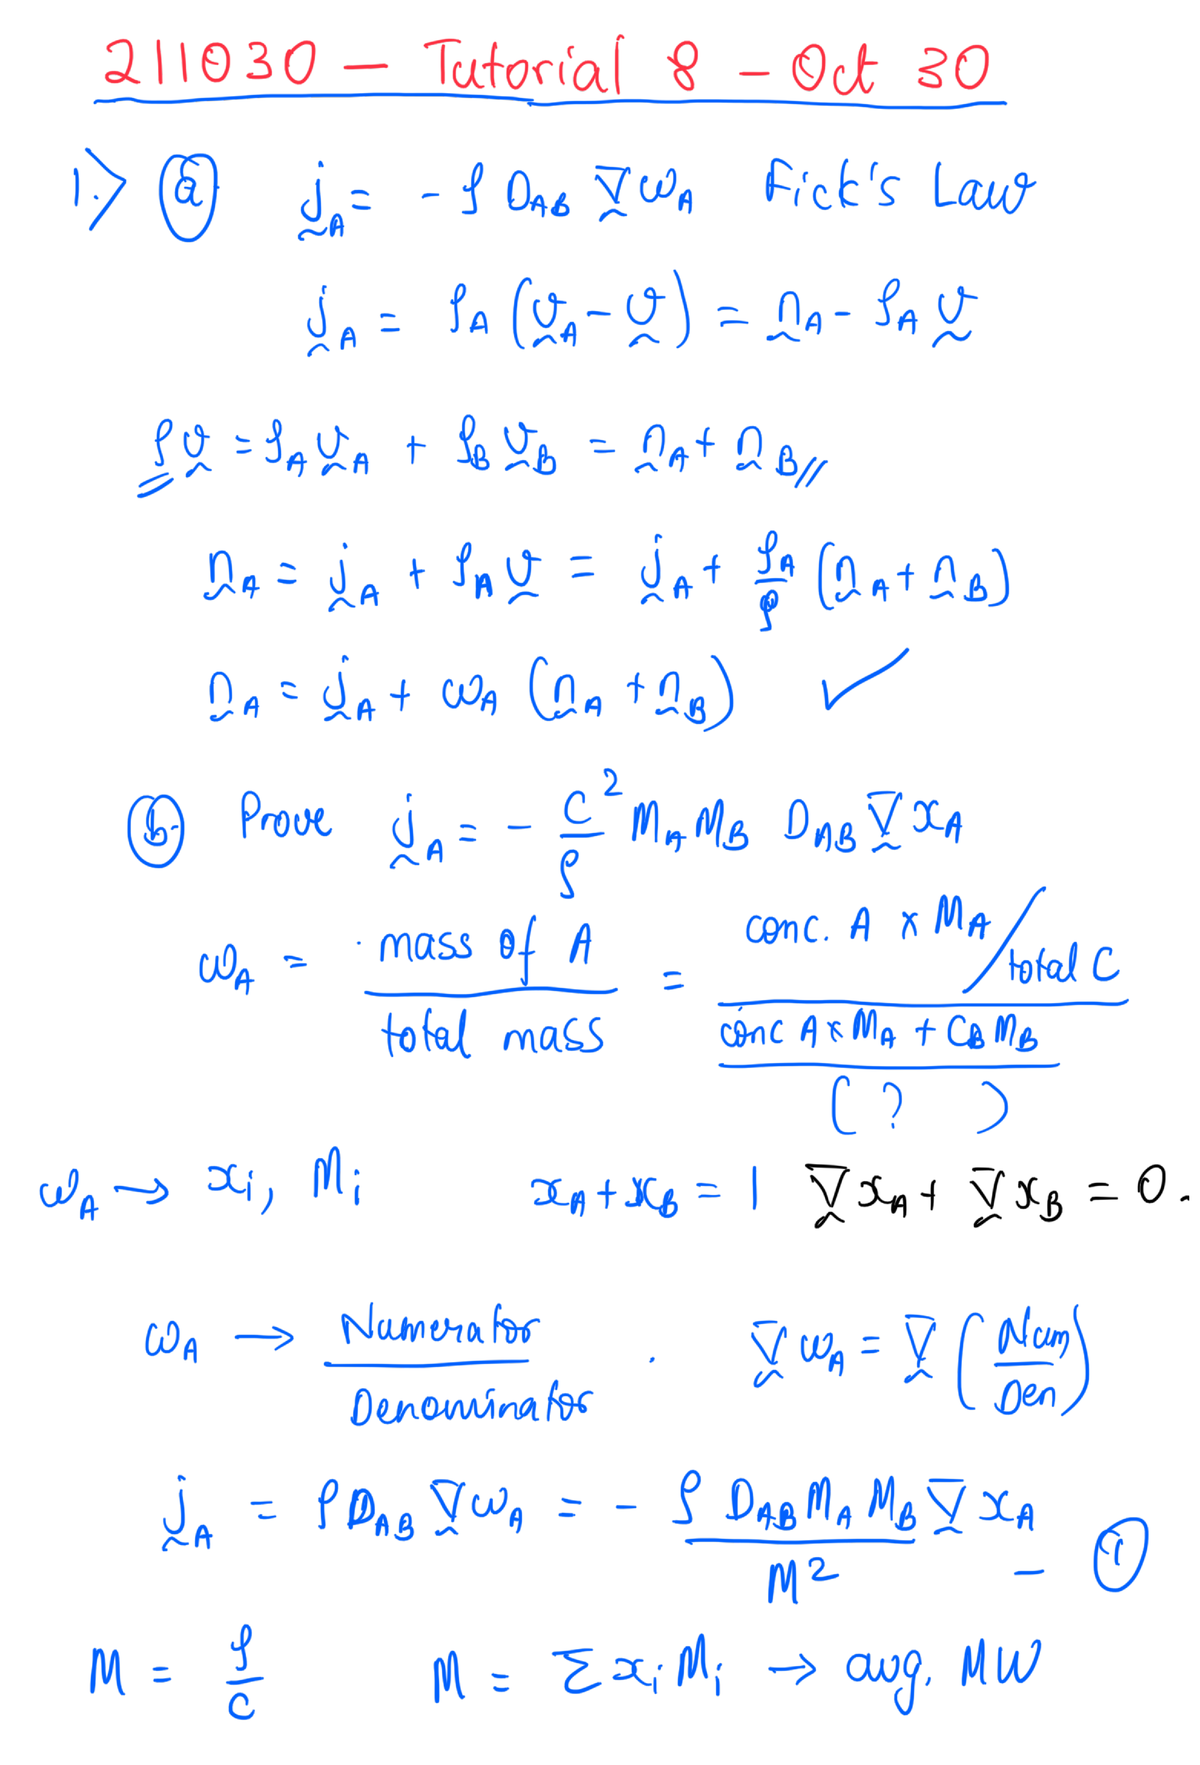 211030 — Tutorial 8 - Oct 30
1.> (a) j_A = - ρ D_AB ∇ω_A Fick's Law
j_A = ρ_A (v_A - v) = n_A - ρ_A v
ρv = ρ_A v_A + ρ_B v_B = n_A + n_B //
n_A = j_A + ρ_A v = j_A + ρ_A/ρ (n_A + n_B)
n_A = j_A + ω_A (n_A + n_B) ✓
(b) Prove j_A = - C²/ρ M_A M_B D_AB ∇x_A
ω_A = mass of A / total mass = (conc. A × M_A / total C) / ((conc A × M_A + C_B M_B) / ( ? ))
ω_A → x_i, M_i x_A + x_B = 1 ∇x_A + ∇x_B = 0.
ω_A → Numerator / Denominator . ∇ω_A = ∇ (Num / Den)
j_A = ρ D_AB ∇ω_A = - ρ D_AB M_A M_B / M² ∇x_A — (1)
M = ρ/C M = Σ x_i M_i → avg. MW